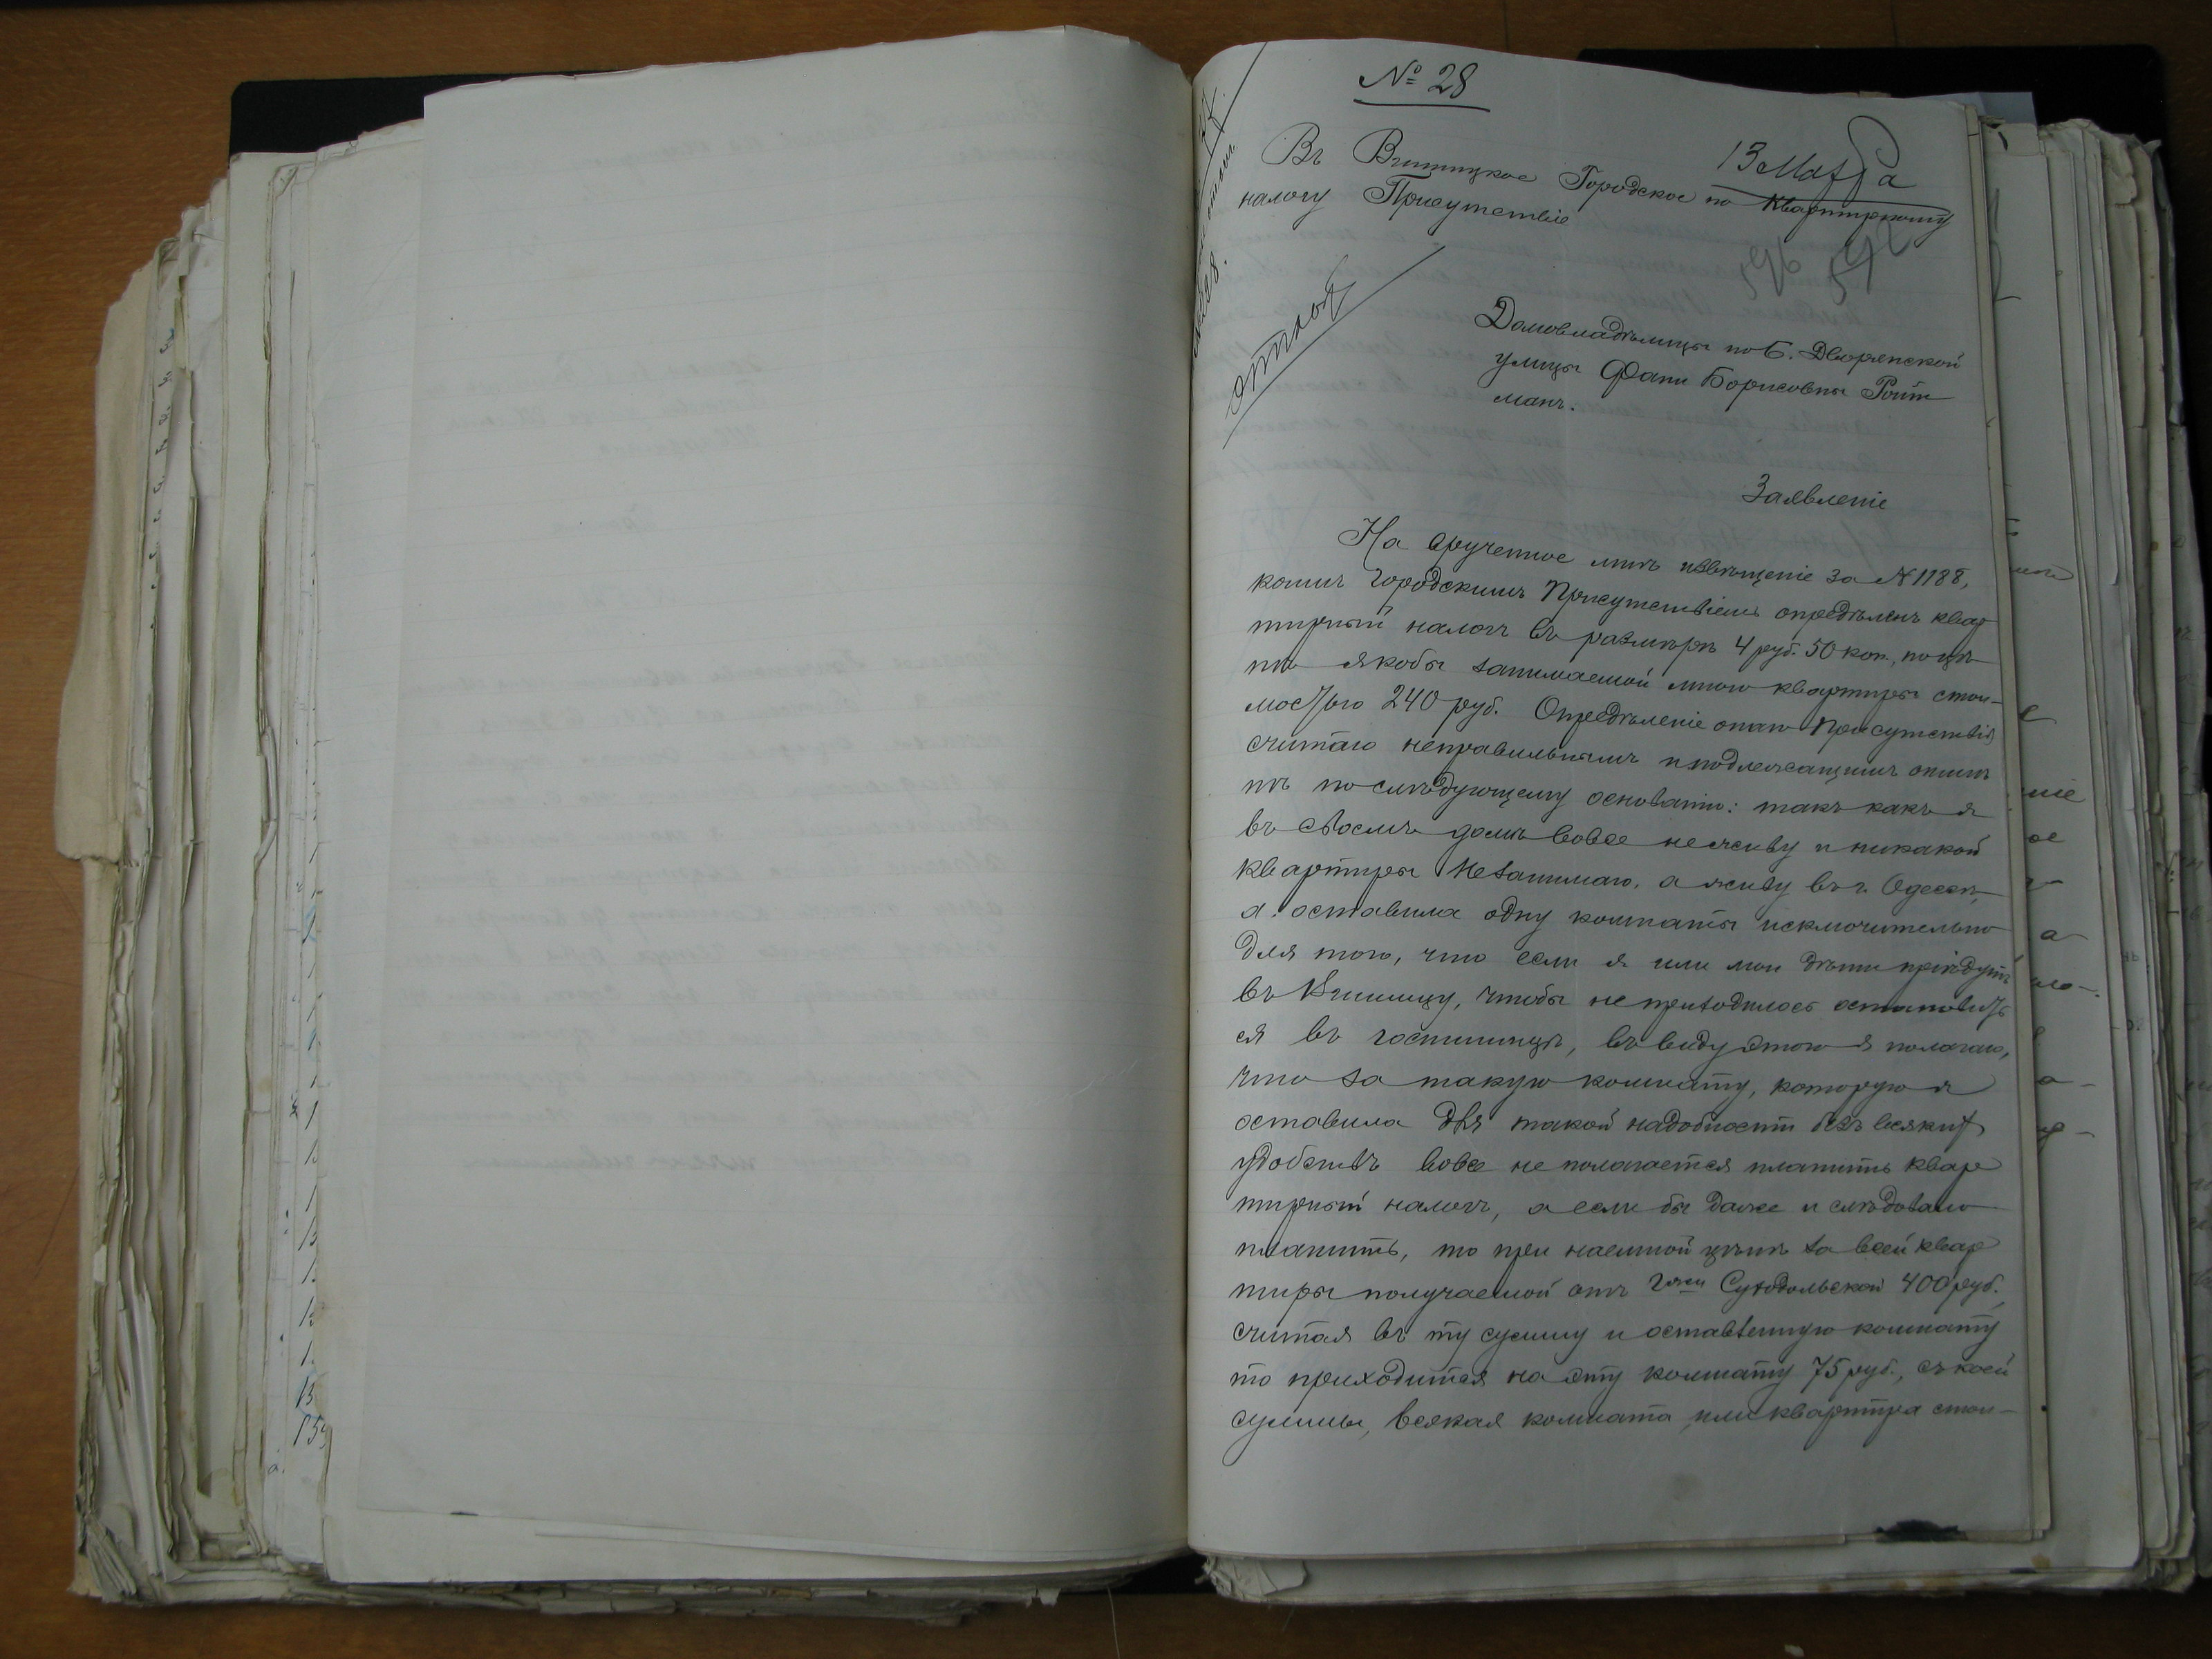 № 28
13 Марта
Въ Винницкое Городское по квартирному
налогу Присутствіе
596 592
Домовладѣлицы по Б. Дворянской
улицы Фани Борисовны Ройт
манъ.
Заявленіе
На врученное мнѣ извѣщеніе за № 1188,
коимъ Городскимъ Присутствіемъ опредѣленъ квар
тирный налогъ въ размѣрѣ 4 руб. 50 коп., по цѣ
нѣ якобы занимаемой мною квартиры стои-
мостью 240 руб. Опредѣленіе онаго Присутствія
считаю неправильнымъ и подлежащимъ отмѣ
нѣ по слѣдующему основанію: такъ какъ я
въ своемъ домѣ вовсе не живу и никакой
квартиры не занимаю, а живу въ г. Одессѣ,
а оставила одну комнаты исключительно
для того, что если я или мои дѣти пріѣдутъ
въ Винницу, чтобы не приходилось остановить
ся въ гостинницѣ, въ виду этого я полагаю,
что за такую комнату, которую я
оставила для такой надобности безъ всякихъ
удобствъ вовсе не полагается платить квар
тирный налогъ, а если бы даже и слѣдовало
платить, то при наемной цѣнѣ за всей квар
тиры получаемой отъ г-жи Суходольской 400 руб.,
считая въ ту сумму и оставленную комнату
то приходится на эту комнату 75 руб., съ коей
суммы, всякая комната или квартира стои-